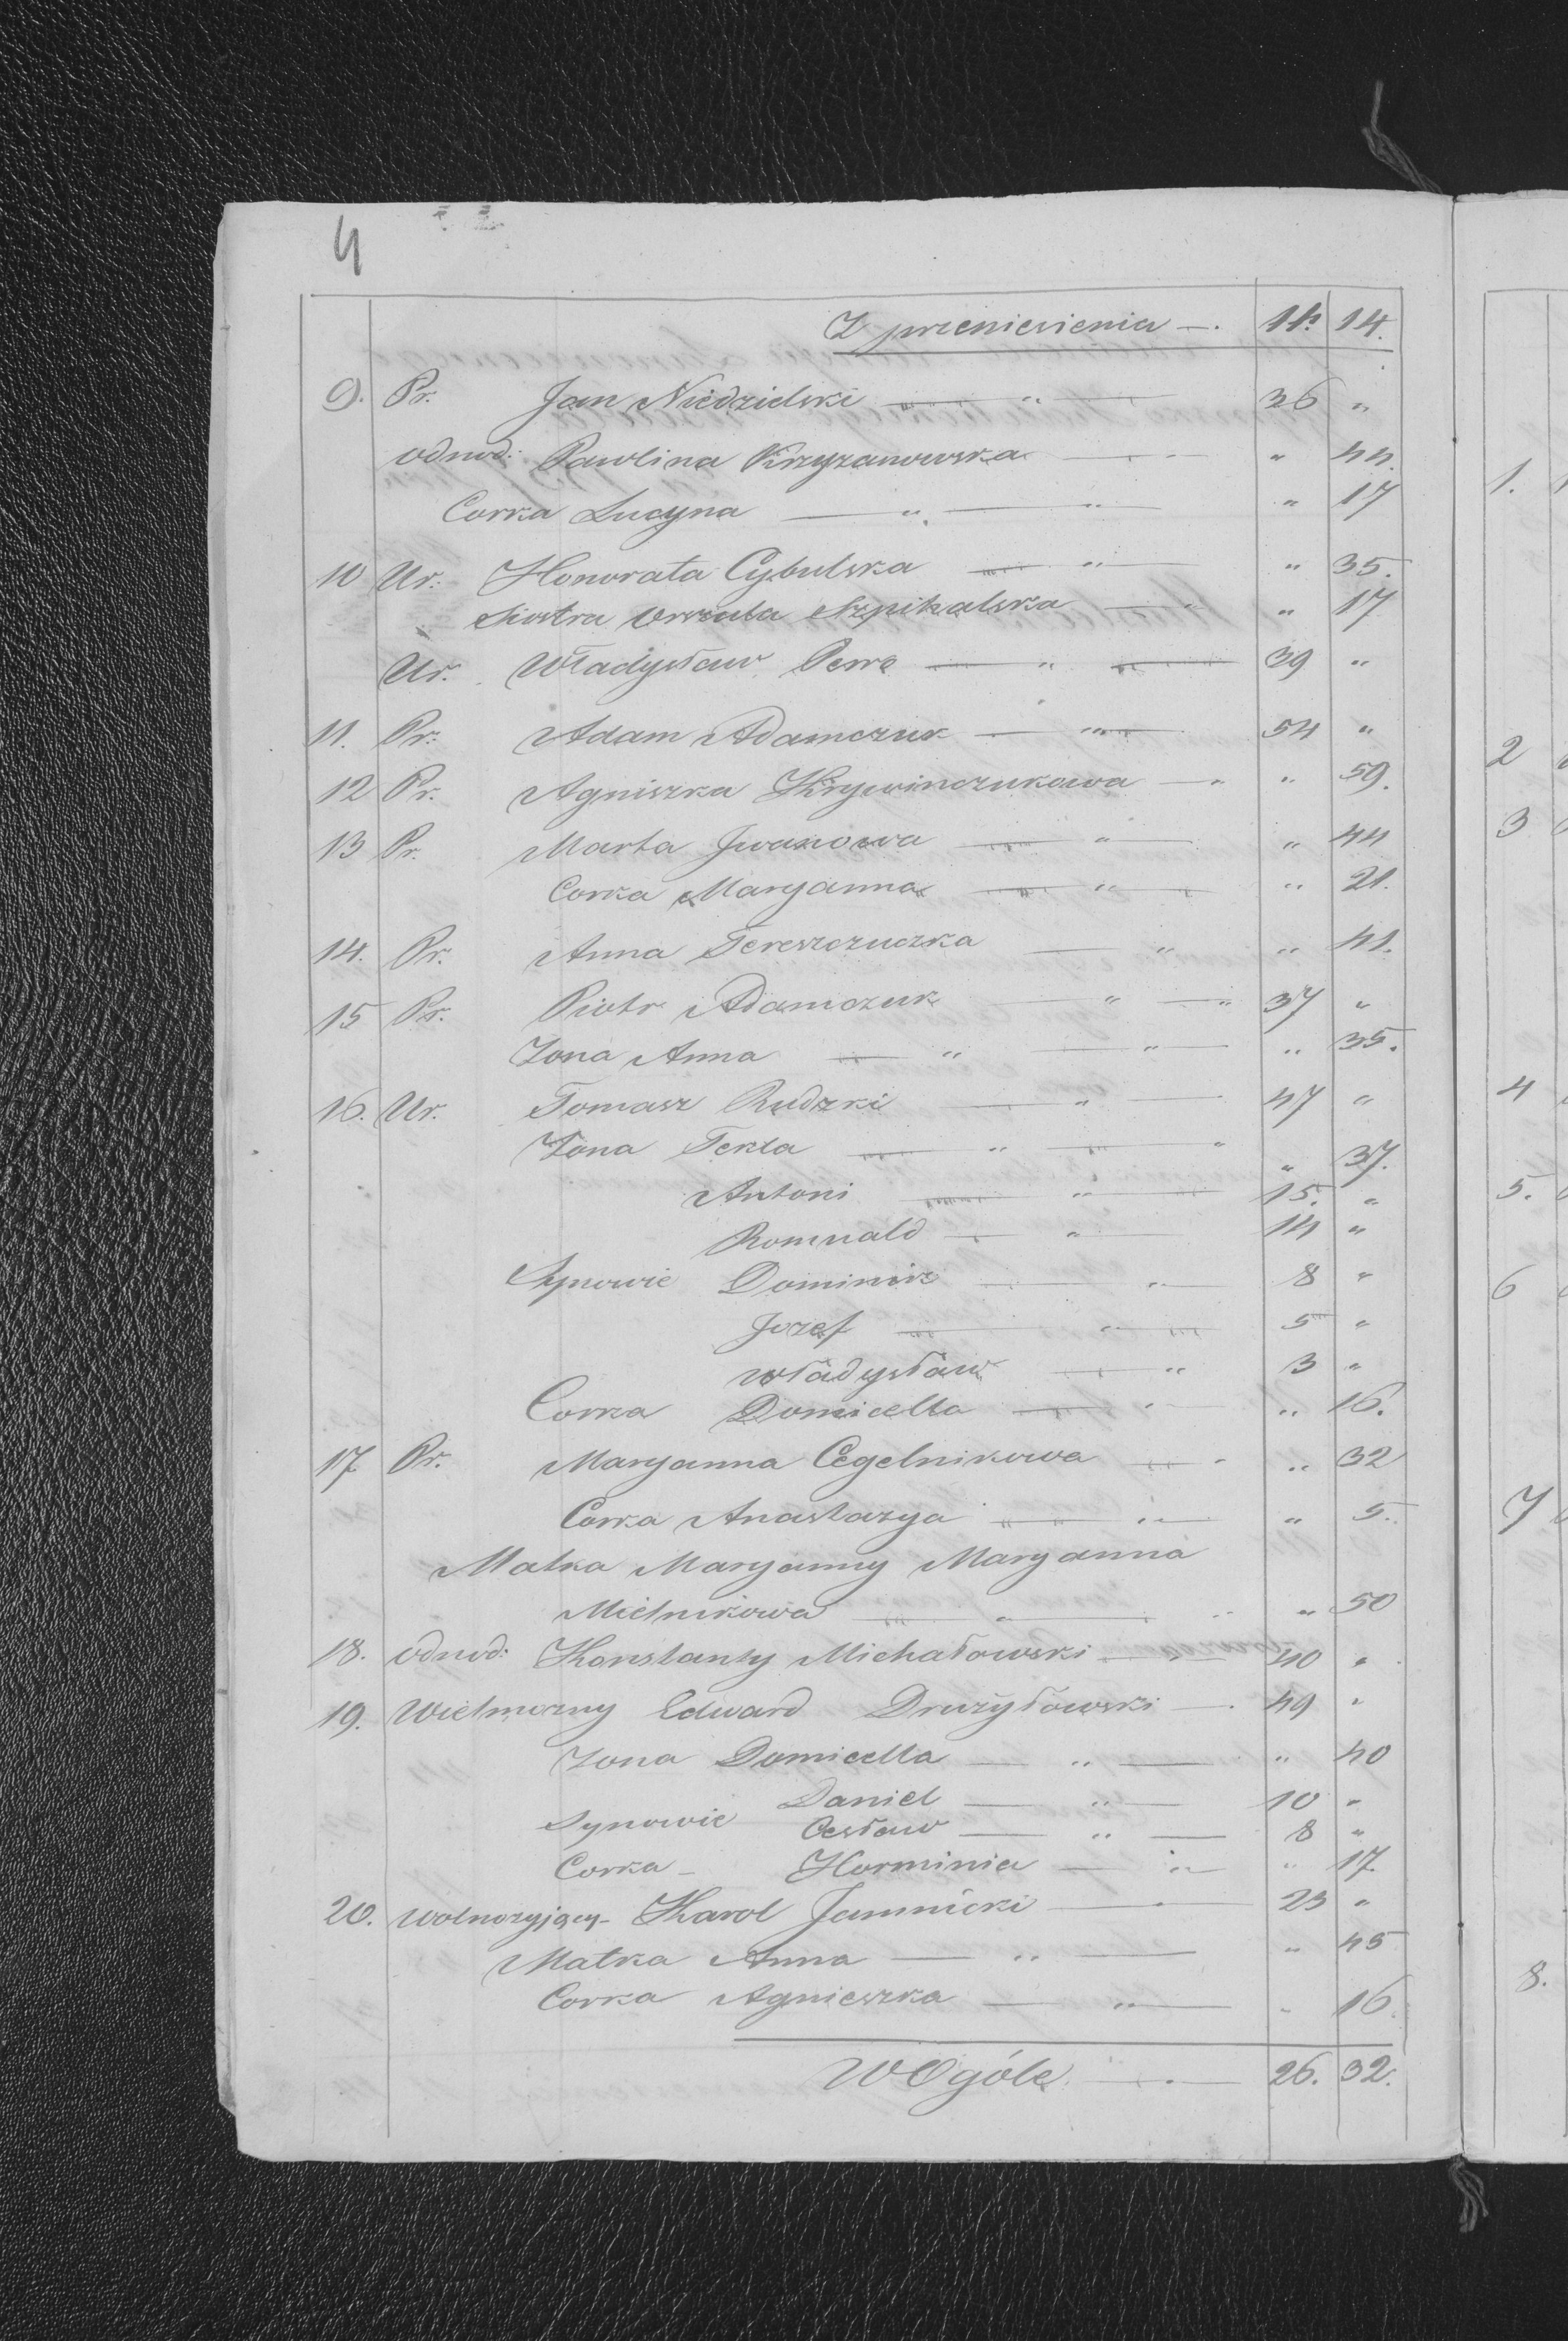 4
Z przeniesienia —. 11. 14.
9. Pr. Jan Niedzielski — " — 36 "
odnod: Pawlina Krzyzanowska — " 44.
Corka Lucyna — " — " " 17
10 Ur: Honorata Cybulska — " — " 35.
Siostra Urszula Szpitalska — " " 17
Ur. Władysław — " — 39 "
11. Pr: Adam Adamczuk — " — 54 "
12 Pr. Agniszka Krywinczukowa — " " 59.
13 Pr. Marta Jwanowa — " — " 44
Corka Maryanna — " — " 21.
14. Pr. Anna Tereszczuczka — " " 41.
15 Pr. Piotr Adamczuk — " — " 37 "
Zona Anna — " — " " 35.
16. Ur. Tomasz Rudzki — " — 47 "
Zona Tekla — " — " " 37.
Antoni — " — 15. "
Romuald — " — 14 "
Synowie Dominik — " 8 "
Jozef — " — 5 "
Władysław — " 3 "
Corka Domicella — " " 16.
17 Pr. Maryanna Cegelnikowa — " " 32
Corka Anastazya — " — " 5.
Matka Maryanny Maryanna
Mielnikowa — " — " 50
18. odnod: Konstanty Michałowski — 40 "
19. Wielmozny Edward Drużyłowski —. 49 "
Zona Domicella — " — " 40
Daniel — " — 10 "
Synowie Cesław — " — 8 "
Corka - Horminia — " — " 17
20. wolnozyjący - Karol Jamnicki — 23 "
Matka Anna — " — " 45
Corka Agnieszka — " — " 16.
W Ogóle — 26. 32.
1.
2
3
4
5.
6
7
8.